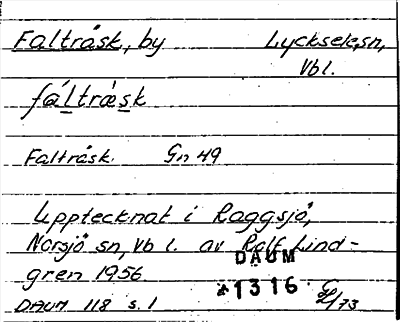 Falträsk, by Lycksele sn,
Vbl.
fáltrǽsk
Falträsk. Gn 49
Upptecknat i Raggsjö,
Norsjö sn, Vb l. av Rolf Lind-
gren 1956.
DAUM
*1316
DAUM 118 s. 1 /73